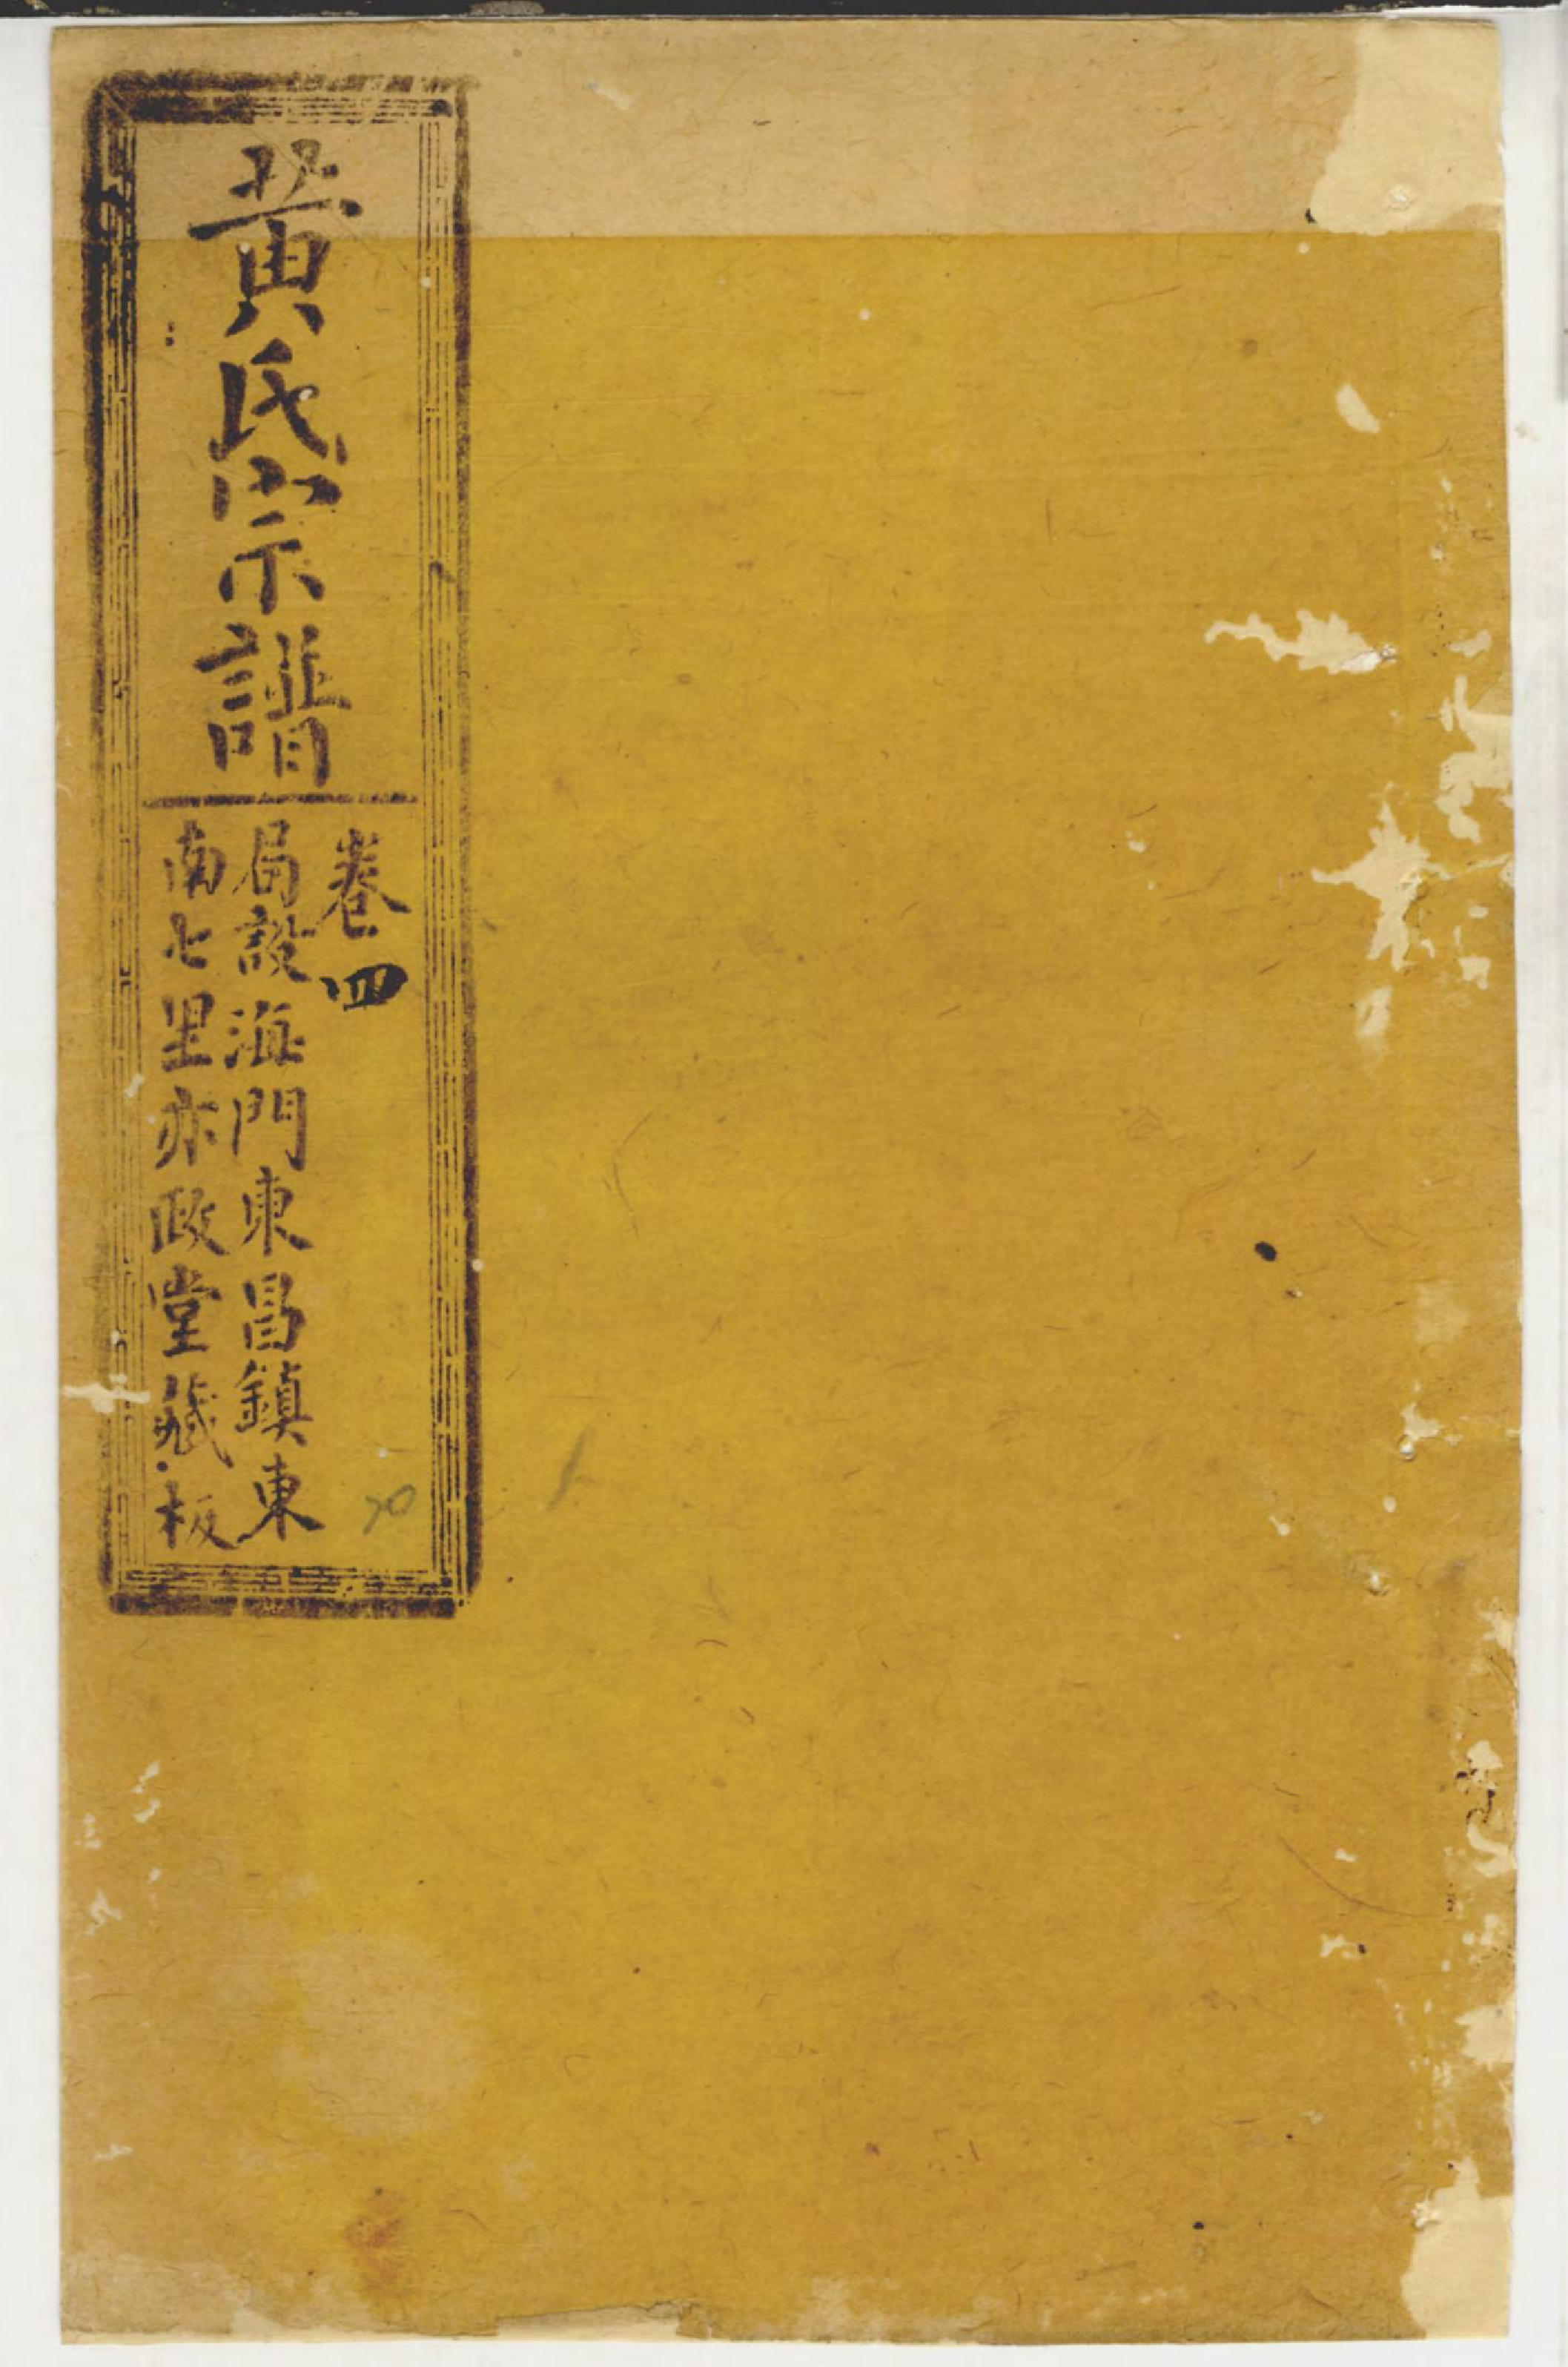 黄氏宗譜
卷四
局設海門東昌鎮東
南七里亦政堂藏板